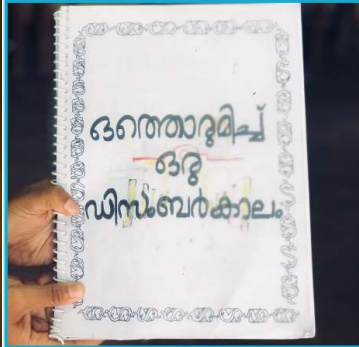 ഒത്തൊരുമിച്ച്
ഒരു
ഡിസംബർകാലം